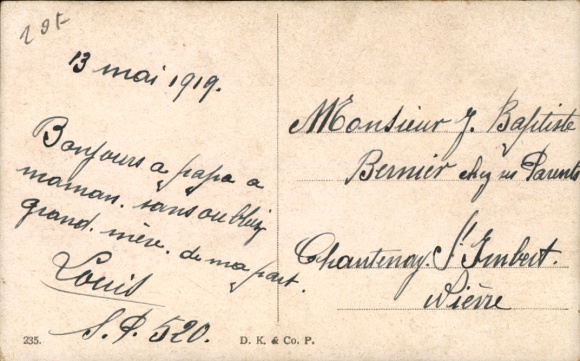 13 mai 1919.
Bonjours a papa a
maman. sans oublier
grand. mère. de ma part.
Louis
S. P. 520.
Monsieur J. Baptiste
Bernier chez ses Parents
Chantenay. St Imbert.
Nièvre
235.
D. K. & Co. P.